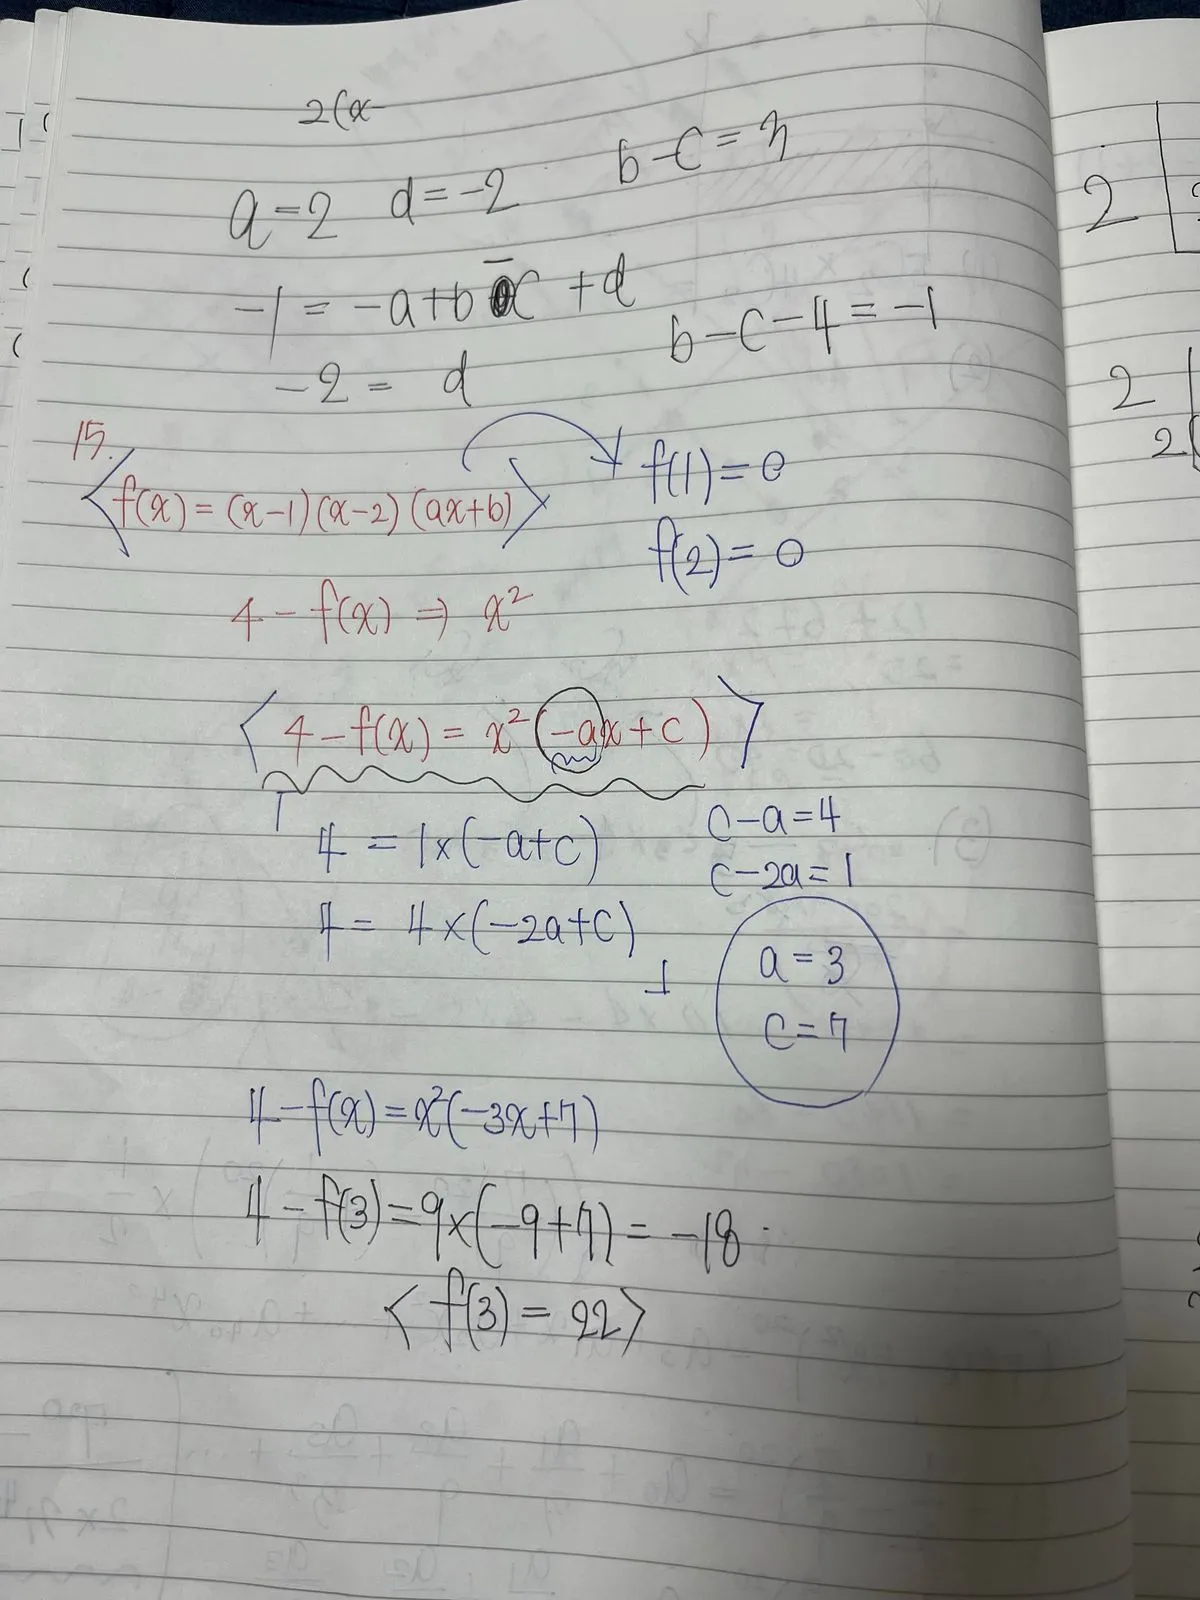 2(x-
b-c=3
a=2 d=-2
-1=-a+b-c+d
b-c-4=-1
-2=d
15.
<f(x)=(x-1)(x-2)(ax+b)>
f(1)=0
f(2)=0
4-f(x)⇒x²
<4-f(x)=x²(-ax+c)>
4=1×(-a+c)
c-a=4
c-2a=1
4=4×(-2a+c)
a=3
c=7
4-f(x)=x²(-3x+7)
4-f(3)=9×(-9+7)=-18
<f(3)=22>
2
2
2(